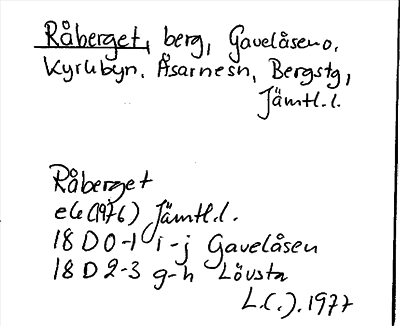 Råberget, berg, Gavelåsen o.
Kyrkbyn, Åsarnesn, Bergstg,
Jämtl.l.
Råberget
ek (1976) Jämtl.l.
18 D 0-1 i-j Gavelåsen
18 D 2-3 g-h Lövsta
L.(.).1977